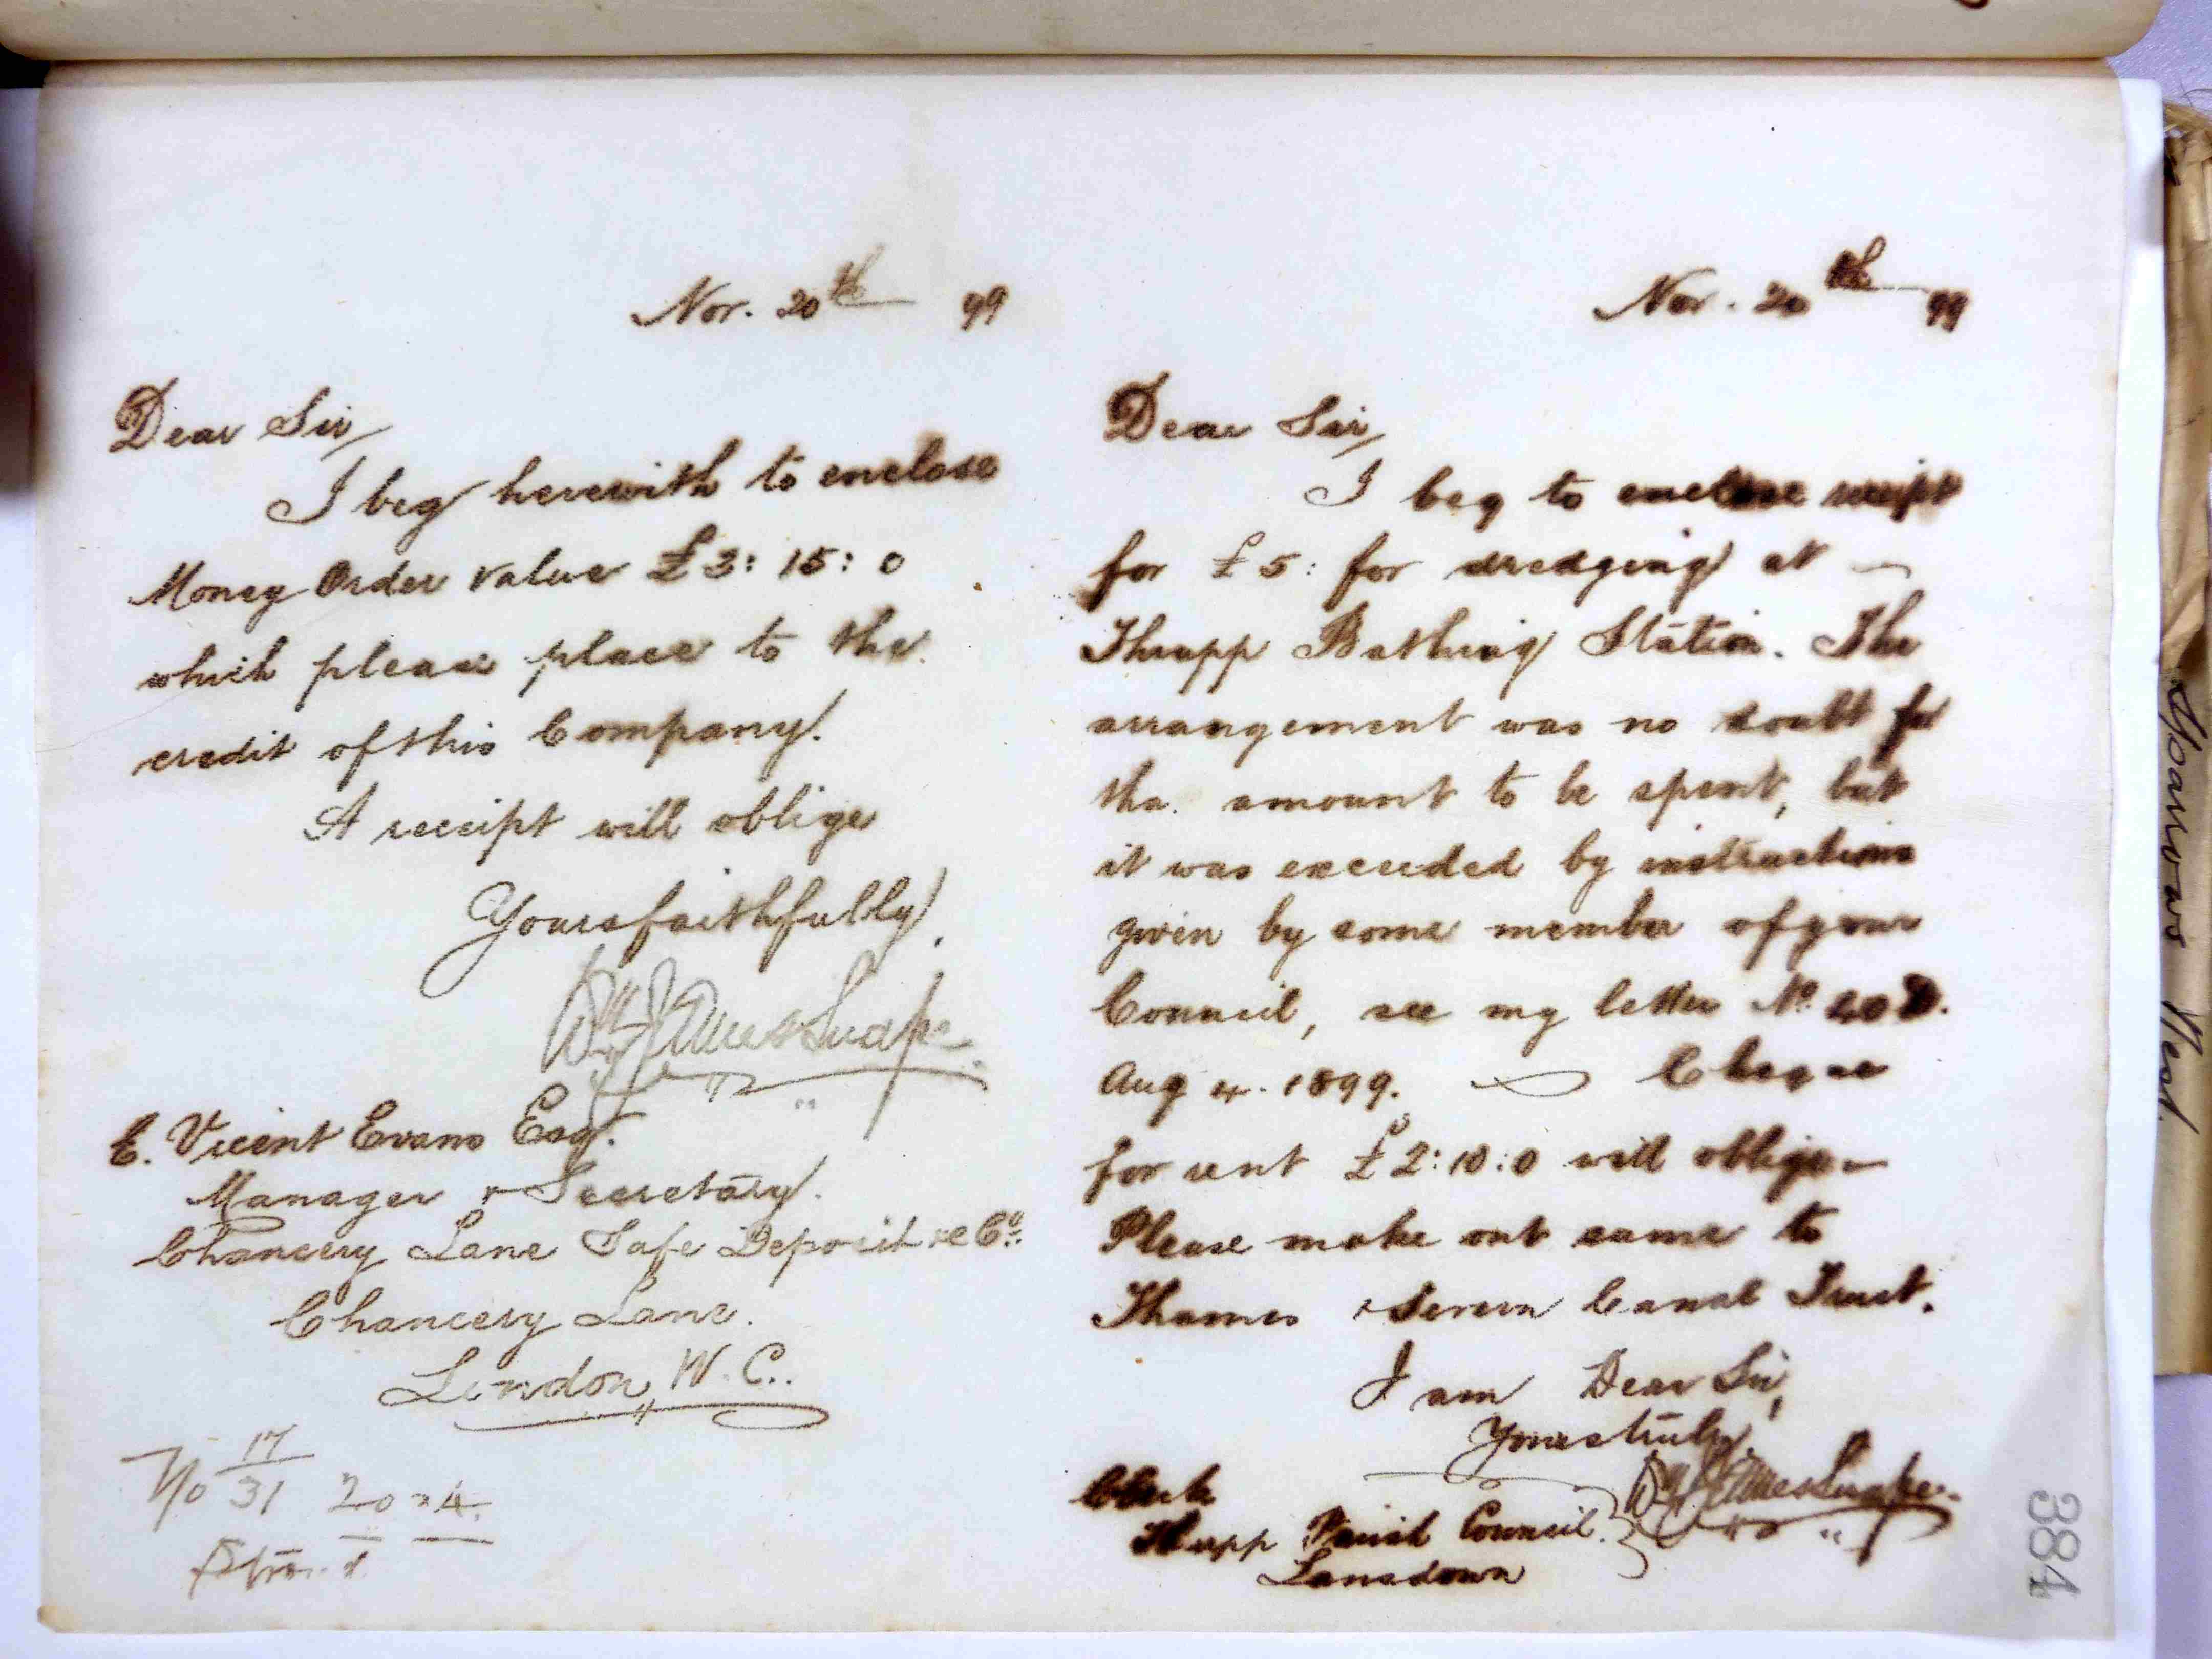 Nov. 20th 99
Dear Sir,
I beg herewith to enclose
Money Order value £3: 15: 0
which please place to the
credit of this Company.
A receipt will oblige
Yours faithfully,
E. Vicent Evans Esq.
Manager & Secretary.
Chancery Lane Safe Deposit &c Co.
Chancery Lane.
London, W.C.
No 17
31
Nov. 20th 99
Dear Sir,
I beg to enclose receipt
for £5: for dredging at
Thrupp Bathing Station. The
arrangement was no doubt for
the amount to be spent, but
it was exceeded by instructions
given by some member of your
Council, see my letter No.
Aug 4. 1899. Cheque
for rent £2: 10: 0 will oblige
Please make out same to
Thames & Severn Canal Trust.
I am Dear Sir,
Yours truly,
Clerk
Thrupp Parish Council.
Lansdown
384